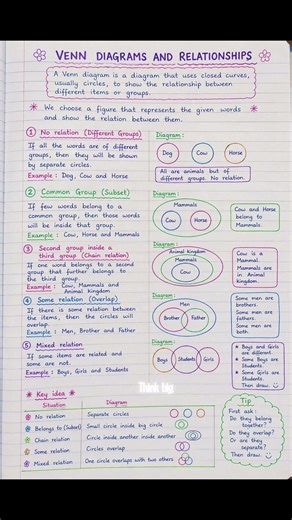 VENN DIAGRAMS AND RELATIONSHIPS
A Venn diagram is a diagram that uses closed curves,
usually circles, to show the relationship between
different items or groups.
* We choose a figure that represents the given words
and show the relation between them.
① No relation (Different Groups)
If all the words are of different
groups, then they will be shown
by separate circles.
Example : Dog, Cow and Horse
Diagram :
Dog
Cow
Horse
All are animals but of
different groups. No relation.
② Common Group (Subset)
If few words belong to a
common group, then those
words will be inside that group.
Example : Cow, Horse and Mammals
Diagram :
Mammals
Cow
Horse
Cow and Horse
belong to
Mammals.
③ Second group inside a
third group (Chain relation)
If one word belongs to a second
group that further belongs to
the third group.
Example : Cow, Mammals and
Animal kingdom
Diagram :
Animal Kingdom
Mammals
Cow
Cow is a
Mammal.
Mammals are
in Animal
kingdom.
④ Some relation (Overlap)
If there is some relation between
the items, then the circles will
overlap.
Example : Men, Brother and Father
Diagram :
Men
Brother
Father
Some men are
brothers.
Some men are
fathers.
Some men are
both.
⑤ Mixed relation
If some items are related and
some are not.
Example : Boys, Students and Girls
Diagram :
Boys
Students
Girls
Boys and Girls
are different.
Some Boys are
Students.
Some Girls are
Students.
Then draw.
Think big
* Key idea *
Situation
Diagram
No relation
Separate circles
Belongs to (Subset)
Small circle inside big circle
Chain relation
Circle inside another inside another
Some relation
Circles overlap
Mixed relation
One circle overlaps with two others
Tip
First ask :
Do they belong
together?
Do they overlap?
Or are they
separate?
Then draw.